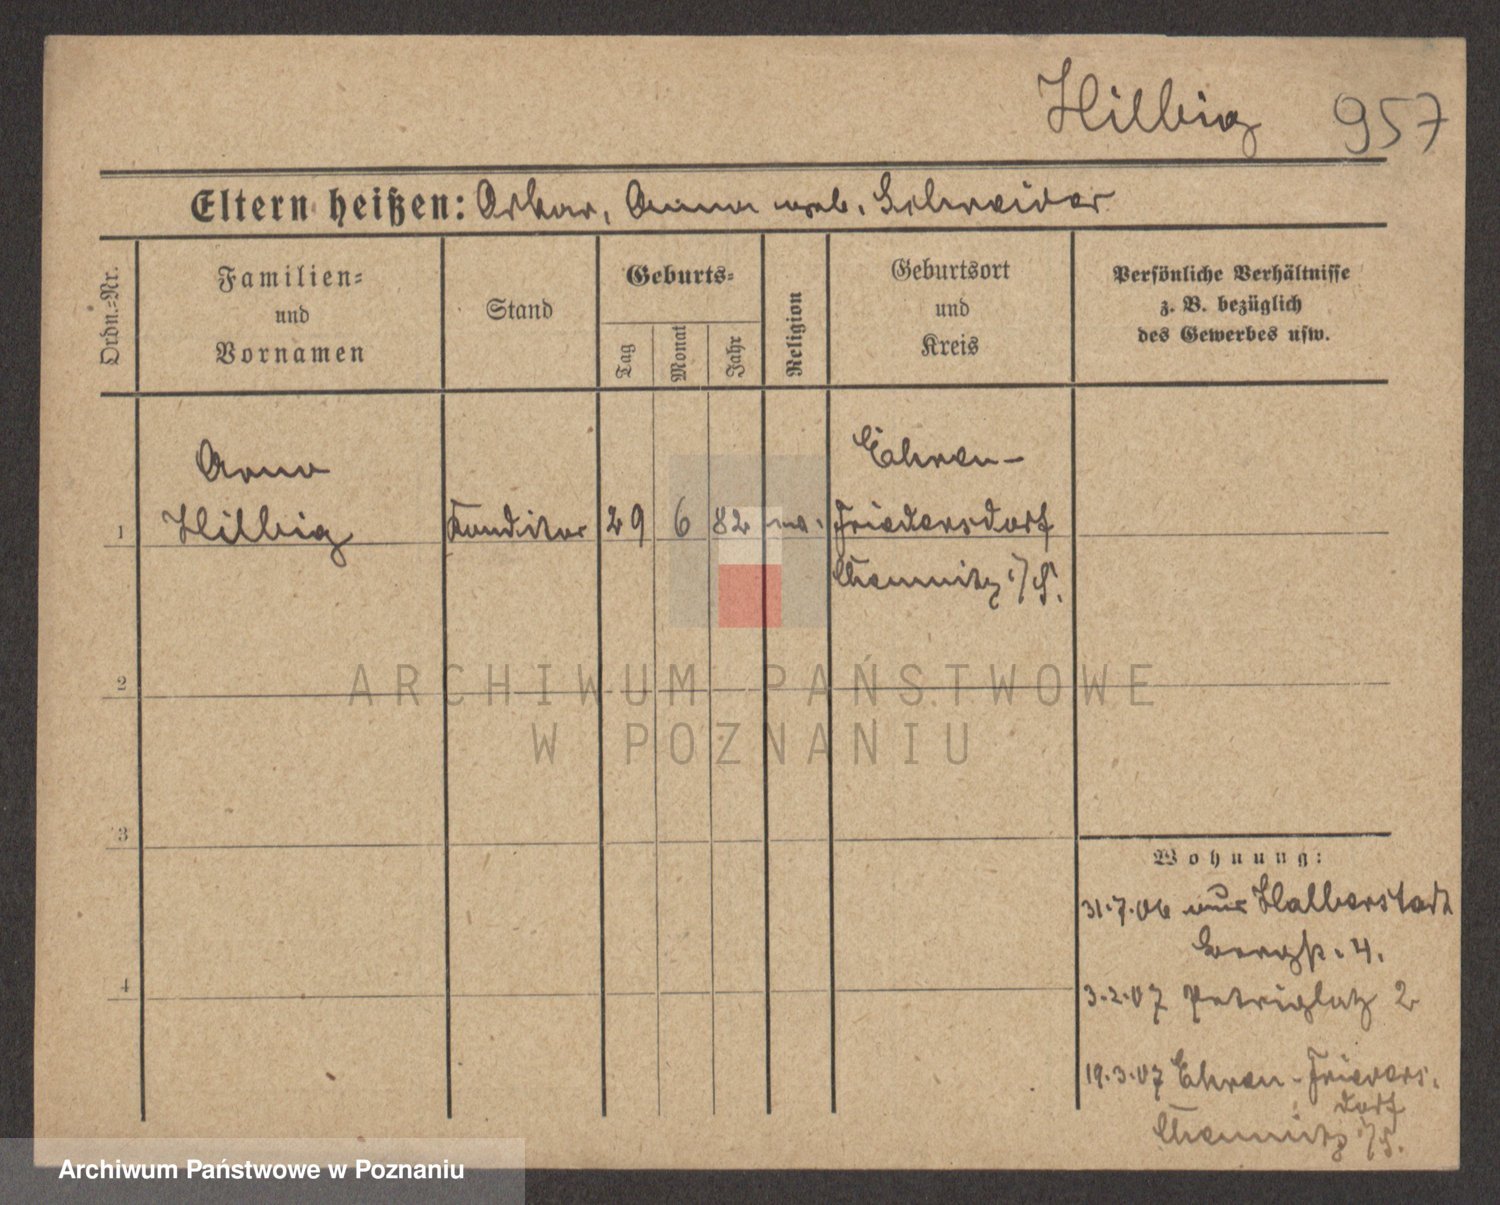 Hilbig 957
Eltern heißen: Oskar, Anna geb. Schneider
Ordn.-Nr.
Familien-
und
Vornamen
Stand
Geburts-
Tag
Monat
Jahr
Religion
Geburtsort
und
Kreis
Persönliche Verhältnisse
z. B. bezüglich
des Gewerbes usw.
Arno
1 Hilbig
Konditor 29 6 82 ev.
Ehren-
Friedersdorf
Chemnitz i/S.
ARCHIWUM PAŃSTWOWE
W POZNANIU
2
3
4
Wohnung:
31.7.06 aus Halberstadt
Bergstr. 4.
3.2.07 Petriplatz 2
19.3.07 Ehren-Frieders-
dorf
Chemnitz i/S.
Archiwum Państwowe w Poznaniu